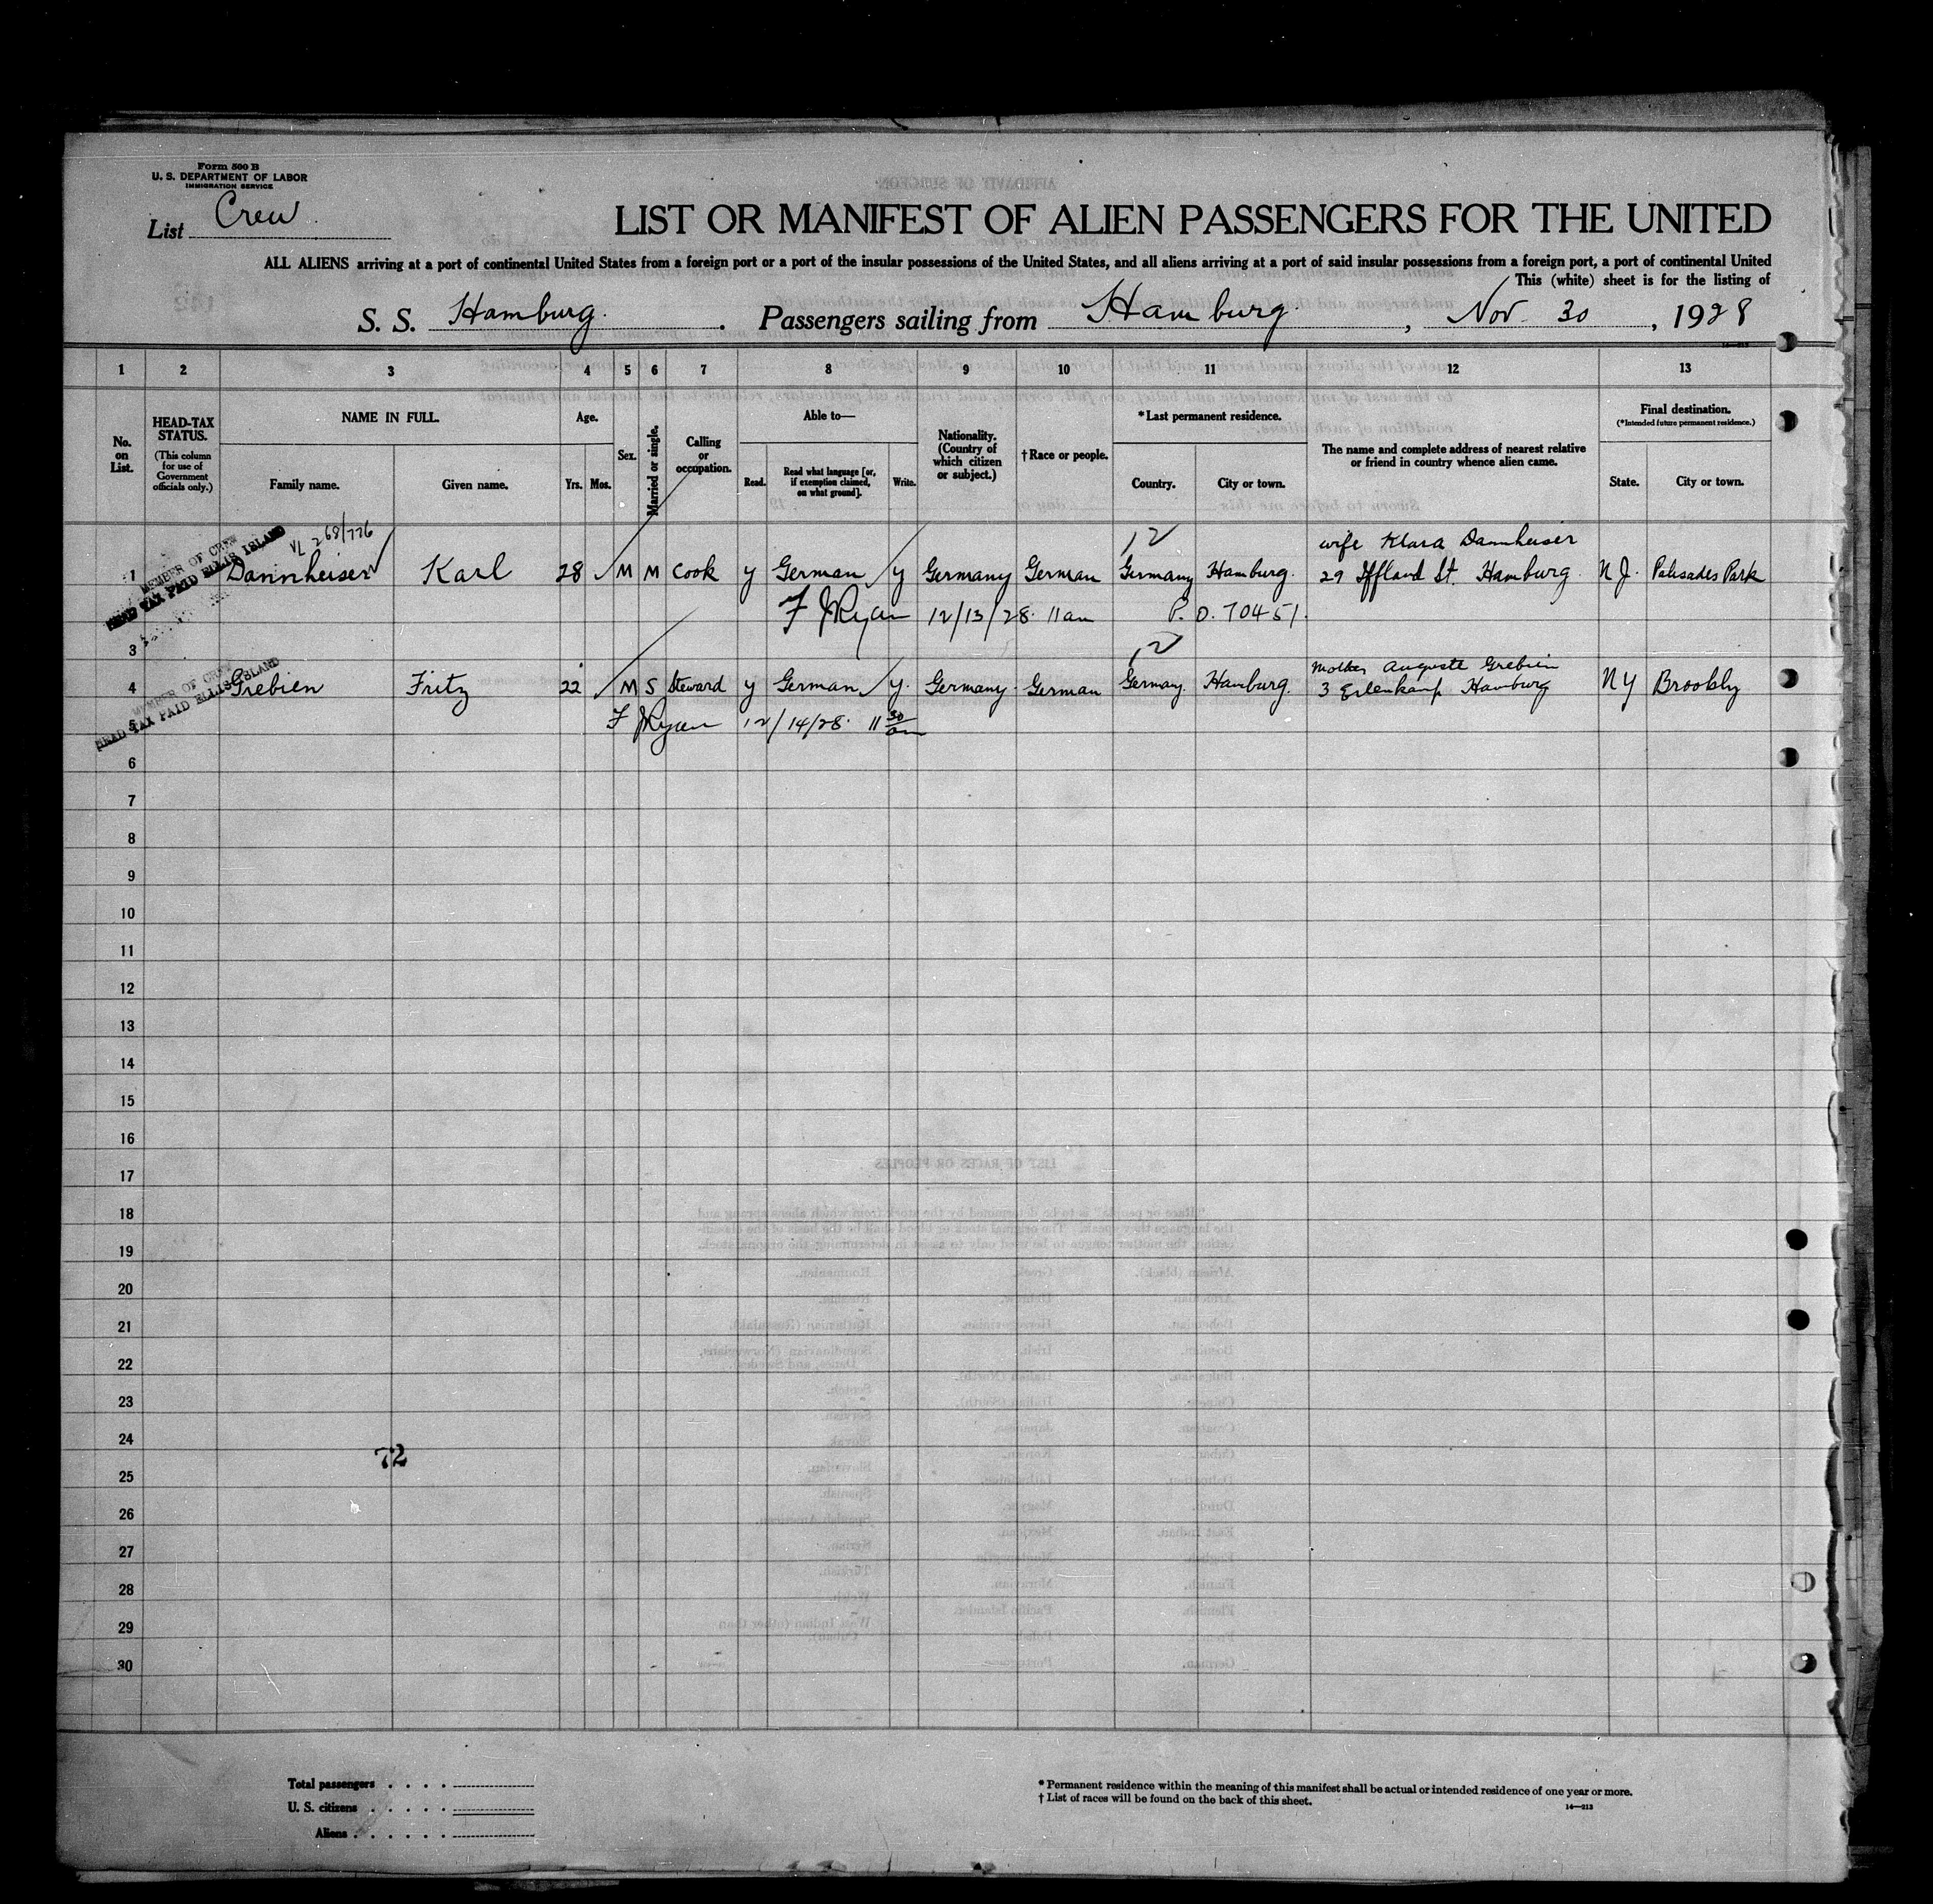 Form 500 B
U. S. DEPARTMENT OF LABOR
IMMIGRATION SERVICE
List Crew
LIST OR MANIFEST OF ALIEN PASSENGERS FOR THE UNITED
ALL ALIENS arriving at a port of continental United States from a foreign port or a port of the insular possessions of the United States, and all aliens arriving at a port of said insular possessions from a foreign port, a port of continental United
This (white) sheet is for the listing of
S. S. Hamburg. Passengers sailing from Hamburg, Nov. 30, 1928
1 2 3 4 5 6 7 8 9 10 11 12 13
No. on List.
HEAD-TAX STATUS.
(This column for use of Government officials only.)
NAME IN FULL.
Family name.
Given name.
Age.
Yrs.
Mos.
Sex.
Married or single.
Calling or occupation.
Able to—
Read.
Read what language [or, if exemption claimed, on what ground].
Write.
Nationality. (Country of which citizen or subject.)
†Race or people.
*Last permanent residence.
Country.
City or town.
The name and complete address of nearest relative or friend in country whence alien came.
Final destination.
(*Intended future permanent residence.)
State.
City or town.
MEMBER OF CREW
HEAD TAX PAID ELLIS ISLAND
VL 268/776
12
wife Klara Dannheiser
1 Dannheiser Karl 28 M M Cook y German y Germany German Germany Hamburg. 29 Iffland St. Hamburg. N J. Palisades Park
F J Ryan 12/13/28 11 am P. O. 70451.
3
MEMBER OF CREW
HEAD TAX PAID ELLIS ISLAND
12
mother Auguste Grebien
4 Grebien Fritz 22 M S Steward y German y. Germany. German Germany. Hamburg. 3 Erlenkamp Hamburg N y Brookly
5
F J Ryan 12/14/28 11 30 am
6
7
8
9
10
11
12
13
14
15
16
17
18
19
20
21
22
23
24
72
25
26
27
28
29
30
Total passengers . . . .
U. S. citizens . . . . .
Aliens . . . . . .
* Permanent residence within the meaning of this manifest shall be actual or intended residence of one year or more.
† List of races will be found on the back of this sheet.
14—213